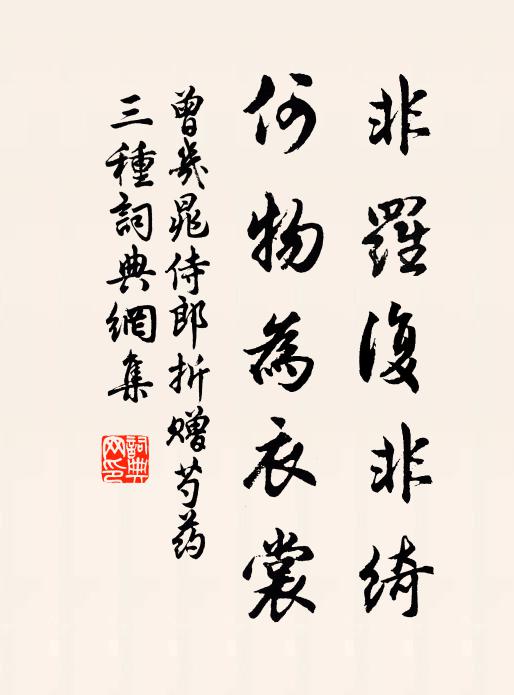 非羅復非綺
何物為衣裳
曾幾晁侍郎折赠芍药
三種詞典網集
詞典网印